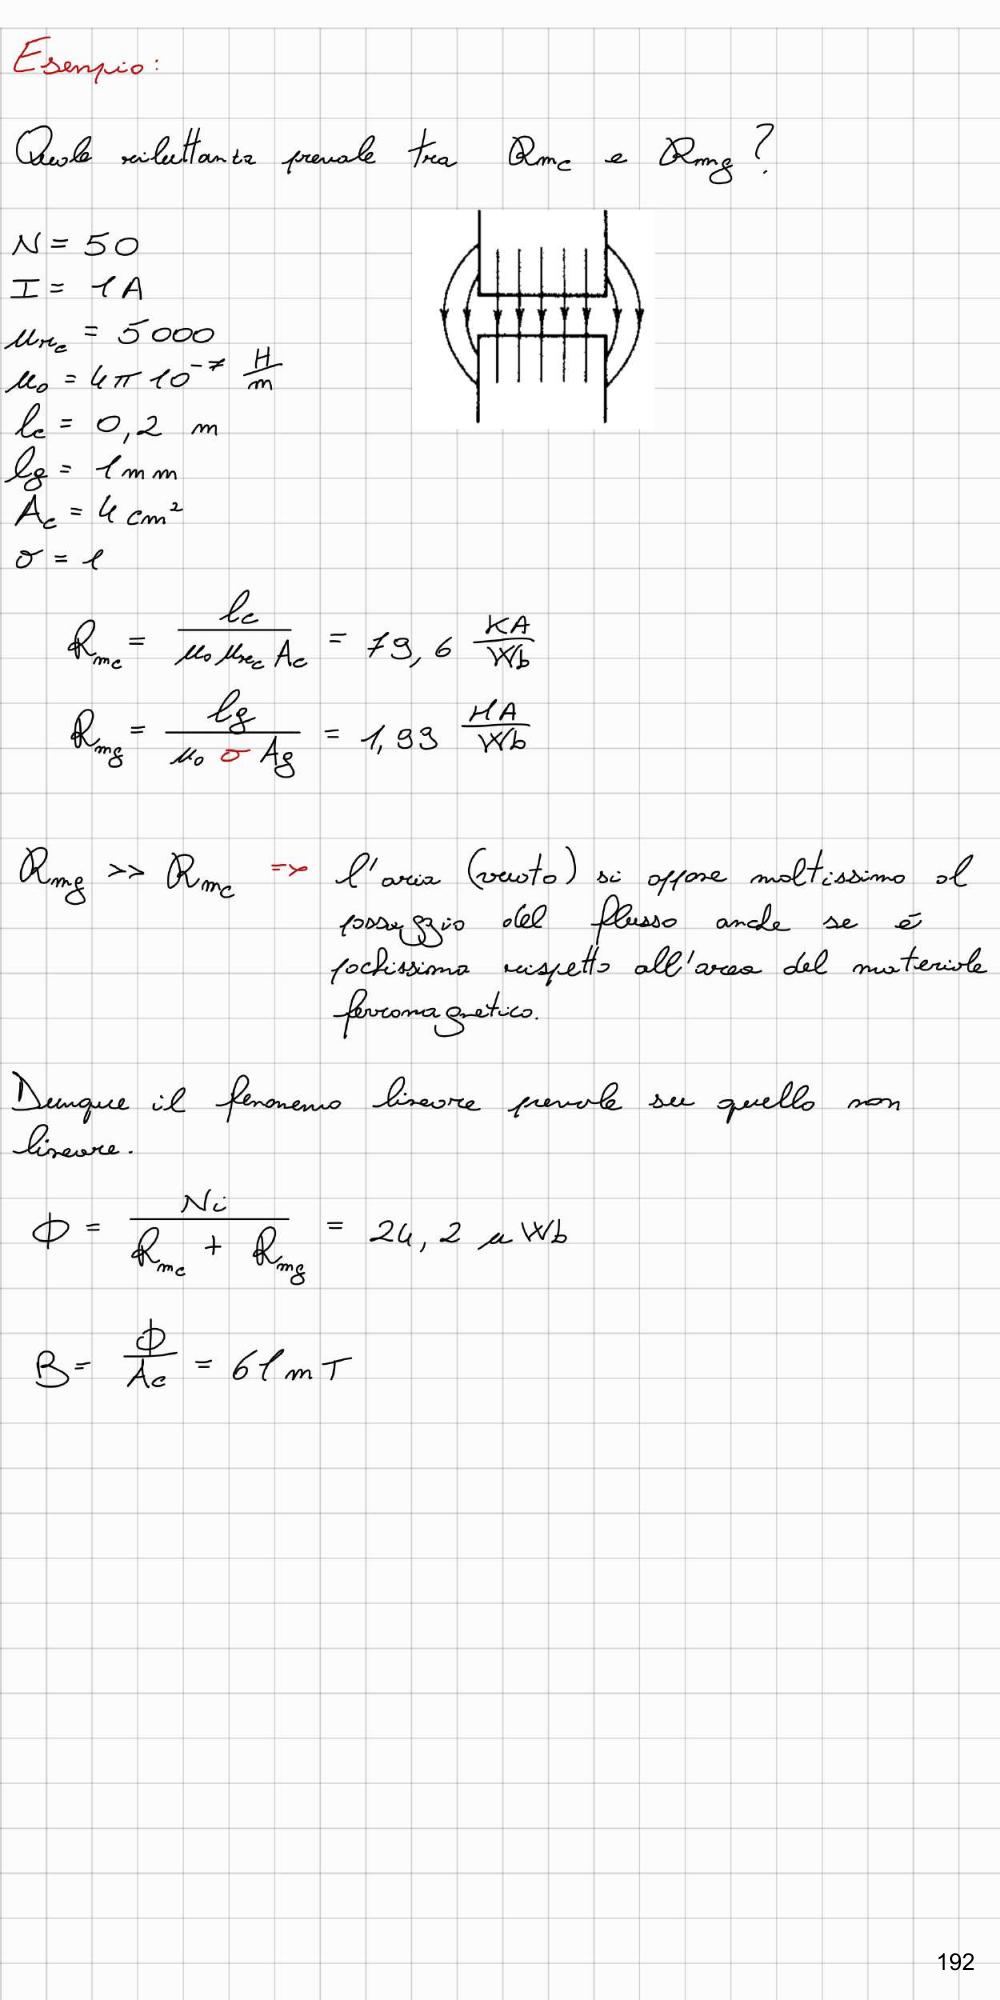 Esempio:
Quale riluttanza prevale tra Rmc e Rmg?
N = 50
I = 1A
μrc = 5000
μ0 = 4π 10^-7 H/m
lc = 0,2 m
lg = 1mm
Ac = 4 cm²
σ = 1
Rmc = lc / (μ0 μrc Ac) = 79,6 KA/Wb
Rmg = lg / (μ0 σ Ag) = 1,99 MA/Wb
Rmg >> Rmc => l'aria (vuoto) si oppone moltissimo al
passaggio del flusso anche se é
pochissima rispetto all'area del materiale
ferromagnetico.
Dunque il fenomeno lineare prevale su quello non
lineare.
Φ = Ni / (Rmc + Rmg) = 24,2 μWb
B = Φ/Ac = 61mT
192